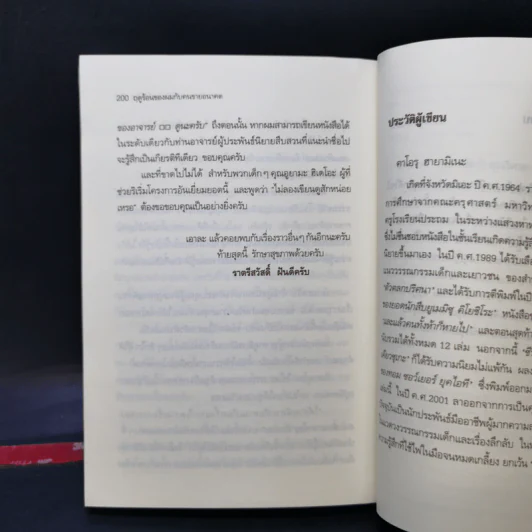 200 ฤดูร้อนของผมกับคนขายอนาคต
ของอาจารย์ ㅁㅁ ดูนะครับ" ถึงตอนนั้น หากผมสามารถเขียนหนังสือได้
ในระดับเดียวกับท่านอาจารย์ผู้ประพันธ์นิยายสืบสวนที่แนะนำชื่อไป
จะรู้สึกเป็นเกียรติทีเดียว ขอบคุณครับ
และที่ขาดไม่ได้ สำหรับพวกเด็กๆ คุณอุยามะ ฮิเดโอะ ผู้ที่
ช่วยริเริ่มโครงการอันเยี่ยมยอดนี้ และพูดว่า "ไม่ลองเขียนดูสักหน่อย
เหรอ" ต้องขอขอบคุณเป็นอย่างยิ่งครับ
เอาละ แล้วคอยพบกับเรื่องราวอื่นๆ กันอีกนะครับ
ท้ายสุดนี้ รักษาสุขภาพด้วยครับ
ราตรีสวัสดิ์ ฝันดีครับ
ประวัติผู้เขียน
คาโอรุ ฮายามิเนะ
เกิดที่จังหวัดมิเอะ ปี ค.ศ.1964
การศึกษาจากคณะครุศาสตร์ มหาวิท
ครูโรงเรียนประถม ในระหว่างแสวงหา
ซึ่งไม่ชื่นชอบหนังสือในชั้นเรียนเกิดความรู้สึ
นิยายขึ้นมาเอง ในปี ค.ศ.1989 ได้รับเลือ
และวรรณกรรมเด็กและเยาวชน ของสำ
"ตัวตลกปริศนา" และได้รับการตีพิมพ์ในปี
ของยอดนักสืบยูเมมิซุ คิโยชิโระ" หนังสือ
"และแล้วคนทั้งห้าก็หายไป" และตอนสุดท้า
นับรวมได้ทั้งหมด 12 เล่ม นอกจากนี้
ก็ได้รับความนิยมไม่แพ้กัน ผลง
ของทอม ซอว์เยอร์ ยุคไอที" ซึ่งพิมพ์ออกม
เล่มนี้ ในปี ค.ศ.2001 ลาออกจากการเป็นค
ปัจจุบันเป็นนักประพันธ์มืออาชีพผู้มากความส
ในแวดวงวรรณกรรมเด็กและเรื่องลึกลับ ในท
ความรู้สึกที่ใช้ไพ่ในมือจนหมดเกลี้ยง ยกเว้น